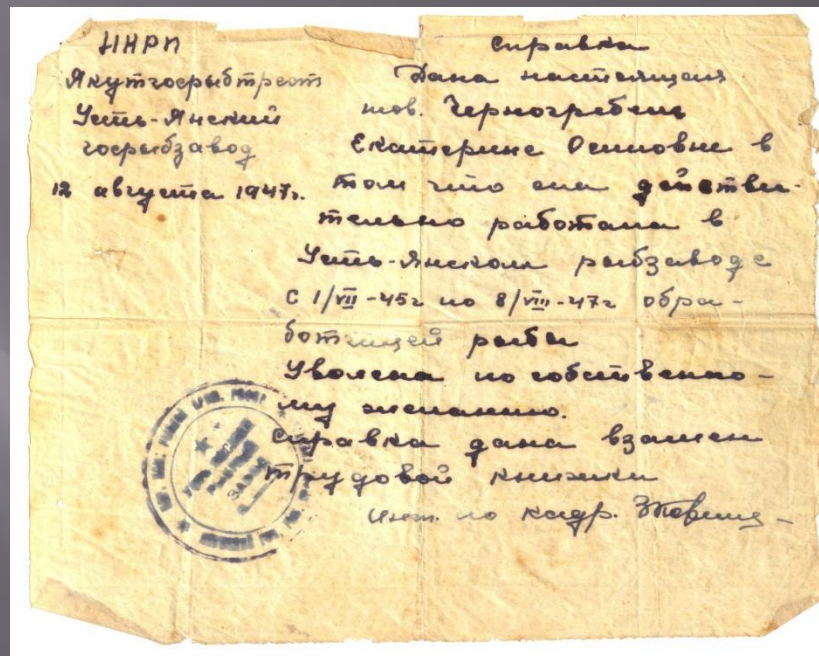 ННРП
Якутгосрыбтрест
Усть-Янский
госрыбзавод
12 августа 1947г.
Справка
Дана настоящая
тов. Черногребель
Екатерине Осиповне в
том что она действи-
тельно работала в
Усть-Янском рыбзаводе
с 1/VII-45г по 8/VIII-47г обра-
ботчицей рыбы
Уволена по собственно-
му желанию.
Справка дана взамен
трудовой книжки
инсп. по кадр.